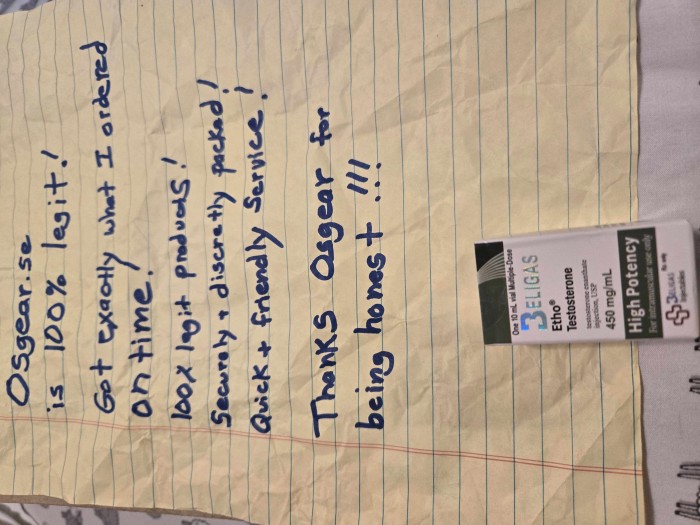 Osgear.se
is 100% legit!
Got exactly what I ordered
on time!
100% legit products!
Securely + discretly packed!
Quick + friendly service!
Thanks Osgear for
being honest !!!
One 10 mL vial Multiple-Dose
BELIGAS
Etho®
Testosterone
testosterone enanthate
injection, USP
450 mg/mL
High Potency
For intramuscular use only
BELIGAS
Rx only